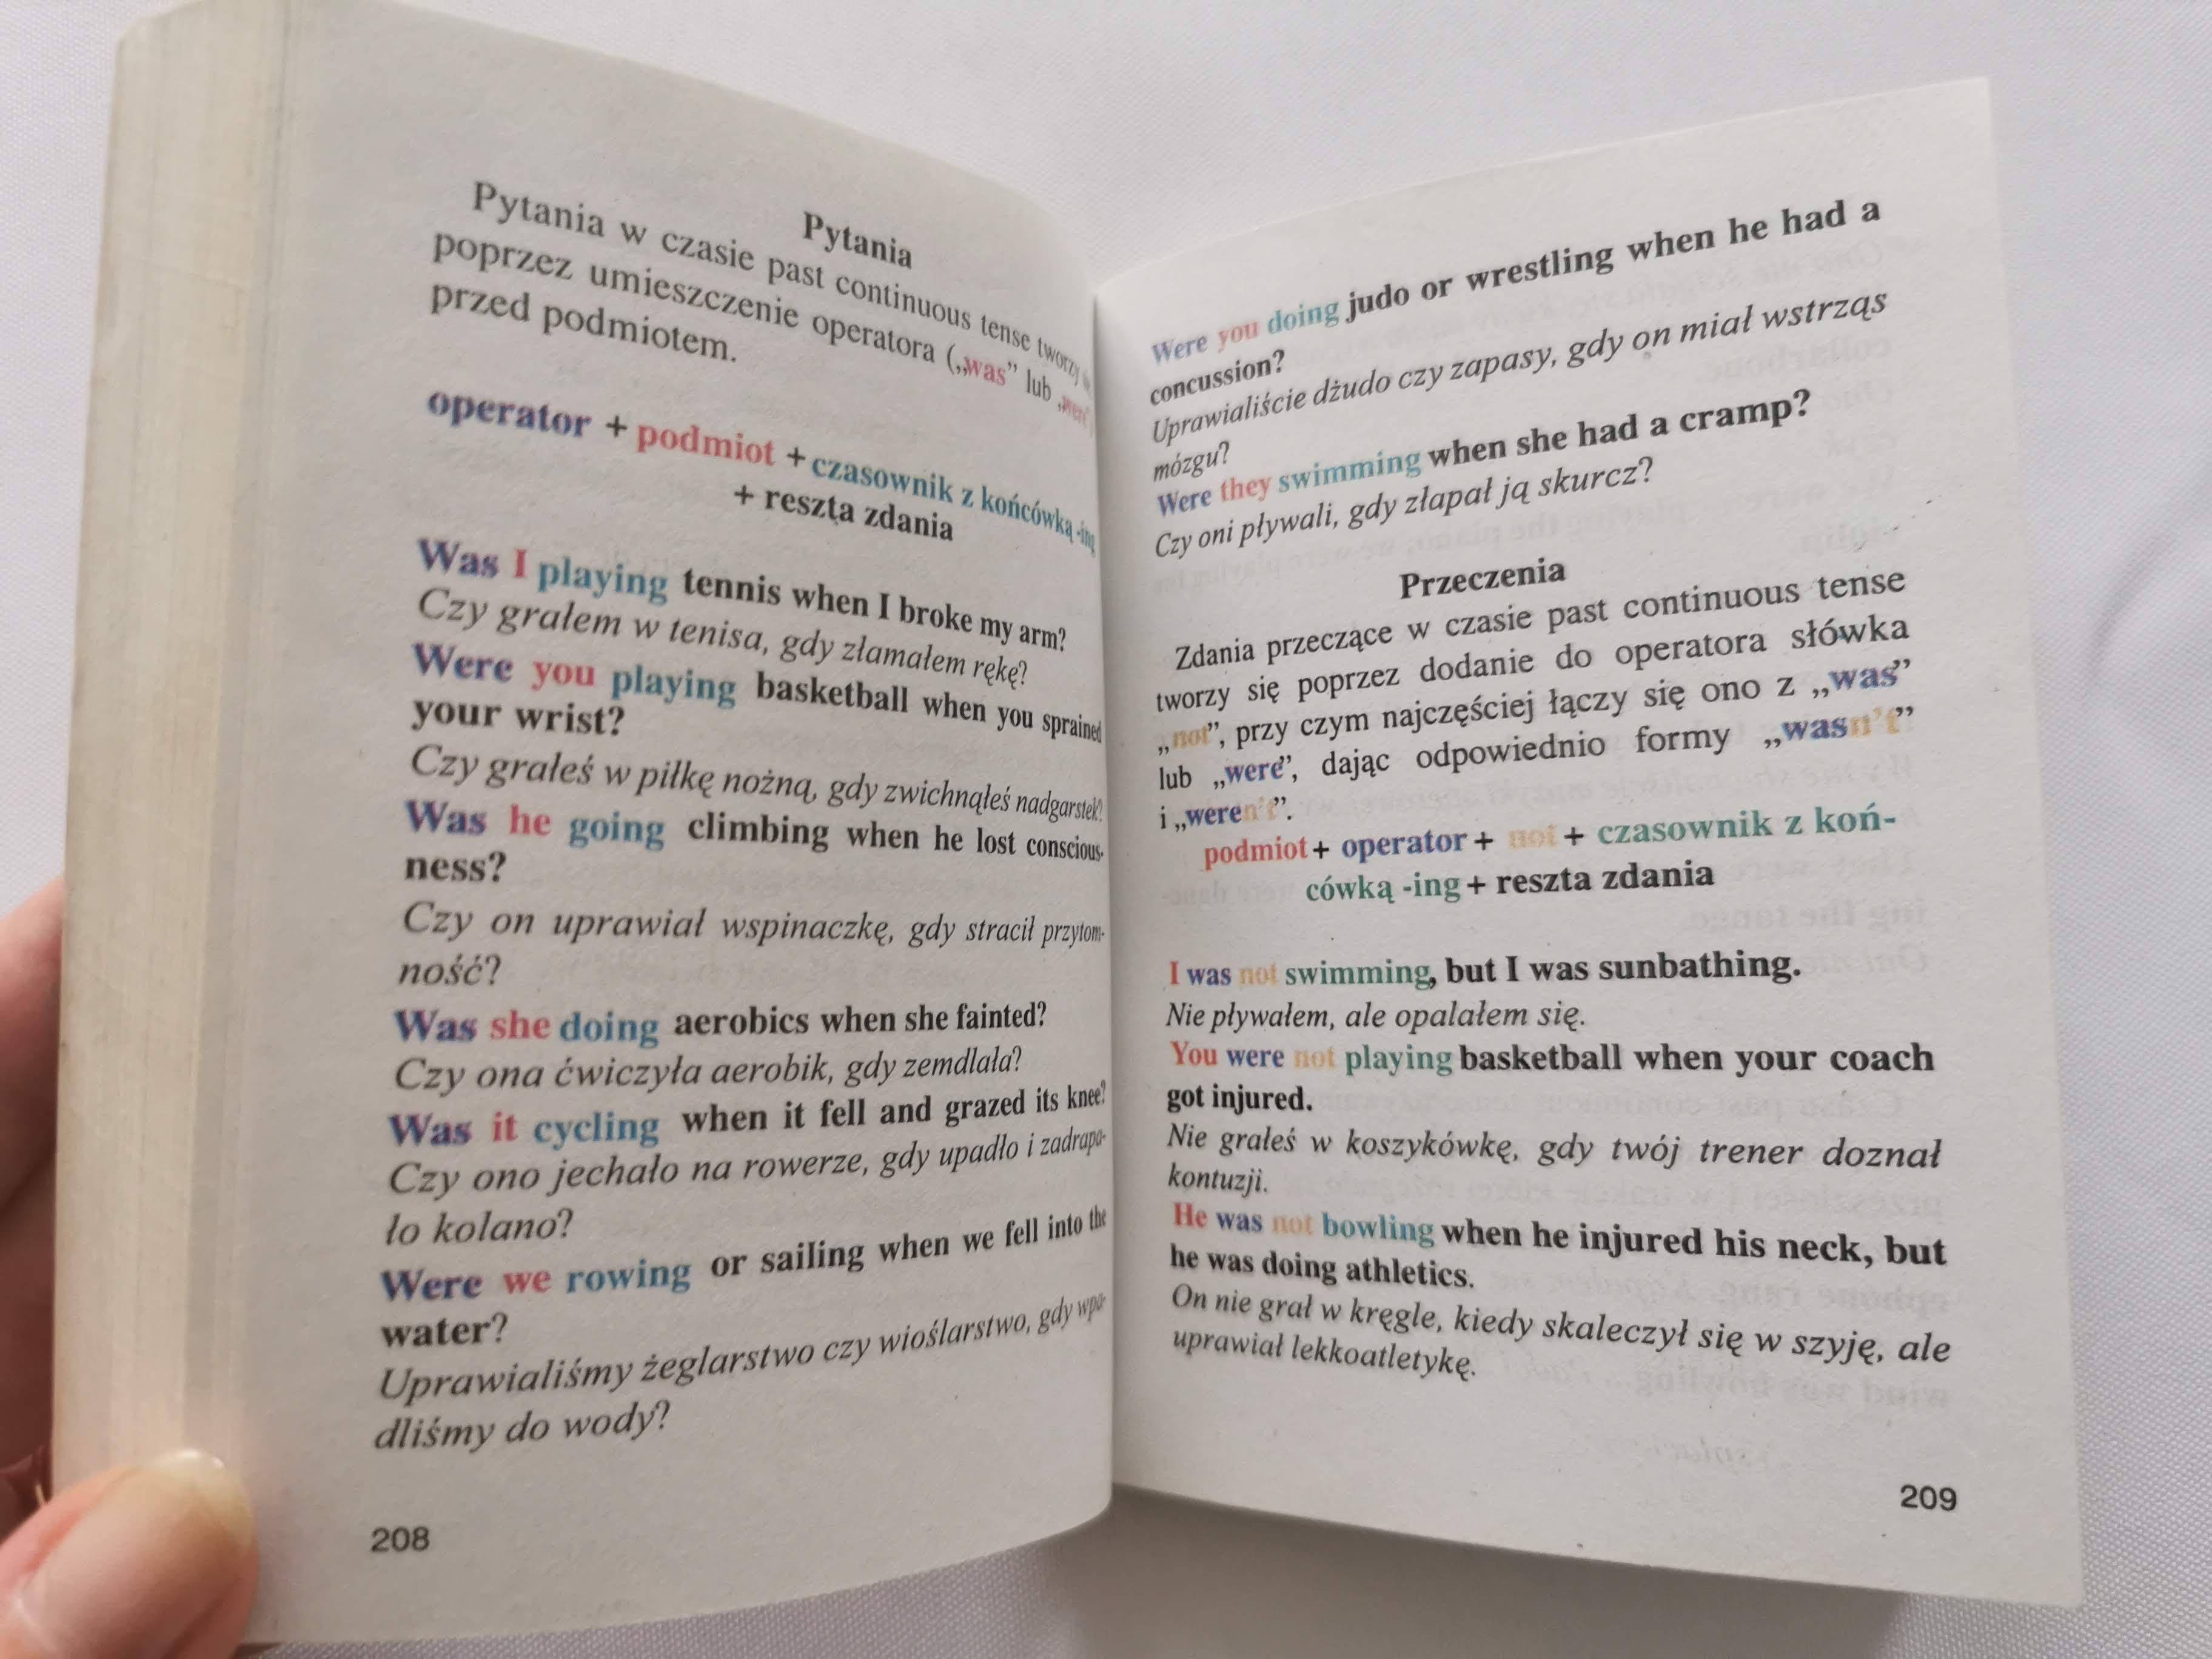 Pytania
Pytania w czasie past continuous tense tworzy
poprzez umieszczenie operatora („was” lub „were”)
przed podmiotem.
operator + podmiot + czasownik z końcówką -ing
+ reszta zdania
Was I playing tennis when I broke my arm?
Czy grałem w tenisa, gdy złamałem rękę?
Were you playing basketball when you sprained
your wrist?
Czy grałeś w piłkę nożną, gdy zwichnąłeś nadgarstek?
Was he going climbing when he lost conscious-
ness?
Czy on uprawiał wspinaczkę, gdy stracił przytom-
ność?
Was she doing aerobics when she fainted?
Czy ona ćwiczyła aerobik, gdy zemdlała?
Was it cycling when it fell and grazed its knee?
Czy ono jechało na rowerze, gdy upadło i zadrapa-
ło kolano?
Were we rowing or sailing when we fell into the
water?
Uprawialiśmy żeglarstwo czy wioślarstwo, gdy wpa-
dliśmy do wody?
208
Were you doing judo or wrestling when he had a
concussion?
Uprawialiście dżudo czy zapasy, gdy on miał wstrząs
mózgu?
Were they swimming when she had a cramp?
Czy oni pływali, gdy złapał ją skurcz?
Przeczenia
Zdania przeczące w czasie past continuous tense
tworzy się poprzez dodanie do operatora słówka
„not”, przy czym najczęściej łączy się ono z „was”
lub „were”, dając odpowiednio formy „wasn’t”
i „weren’t”.
podmiot + operator + not + czasownik z koń-
cówką -ing + reszta zdania
I was not swimming, but I was sunbathing.
Nie pływałem, ale opalałem się.
You were not playing basketball when your coach
got injured.
Nie grałeś w koszykówkę, gdy twój trener doznał
kontuzji.
He was not bowling when he injured his neck, but
he was doing athletics.
On nie grał w kręgle, kiedy skaleczył się w szyję, ale
uprawiał lekkoatletykę.
209